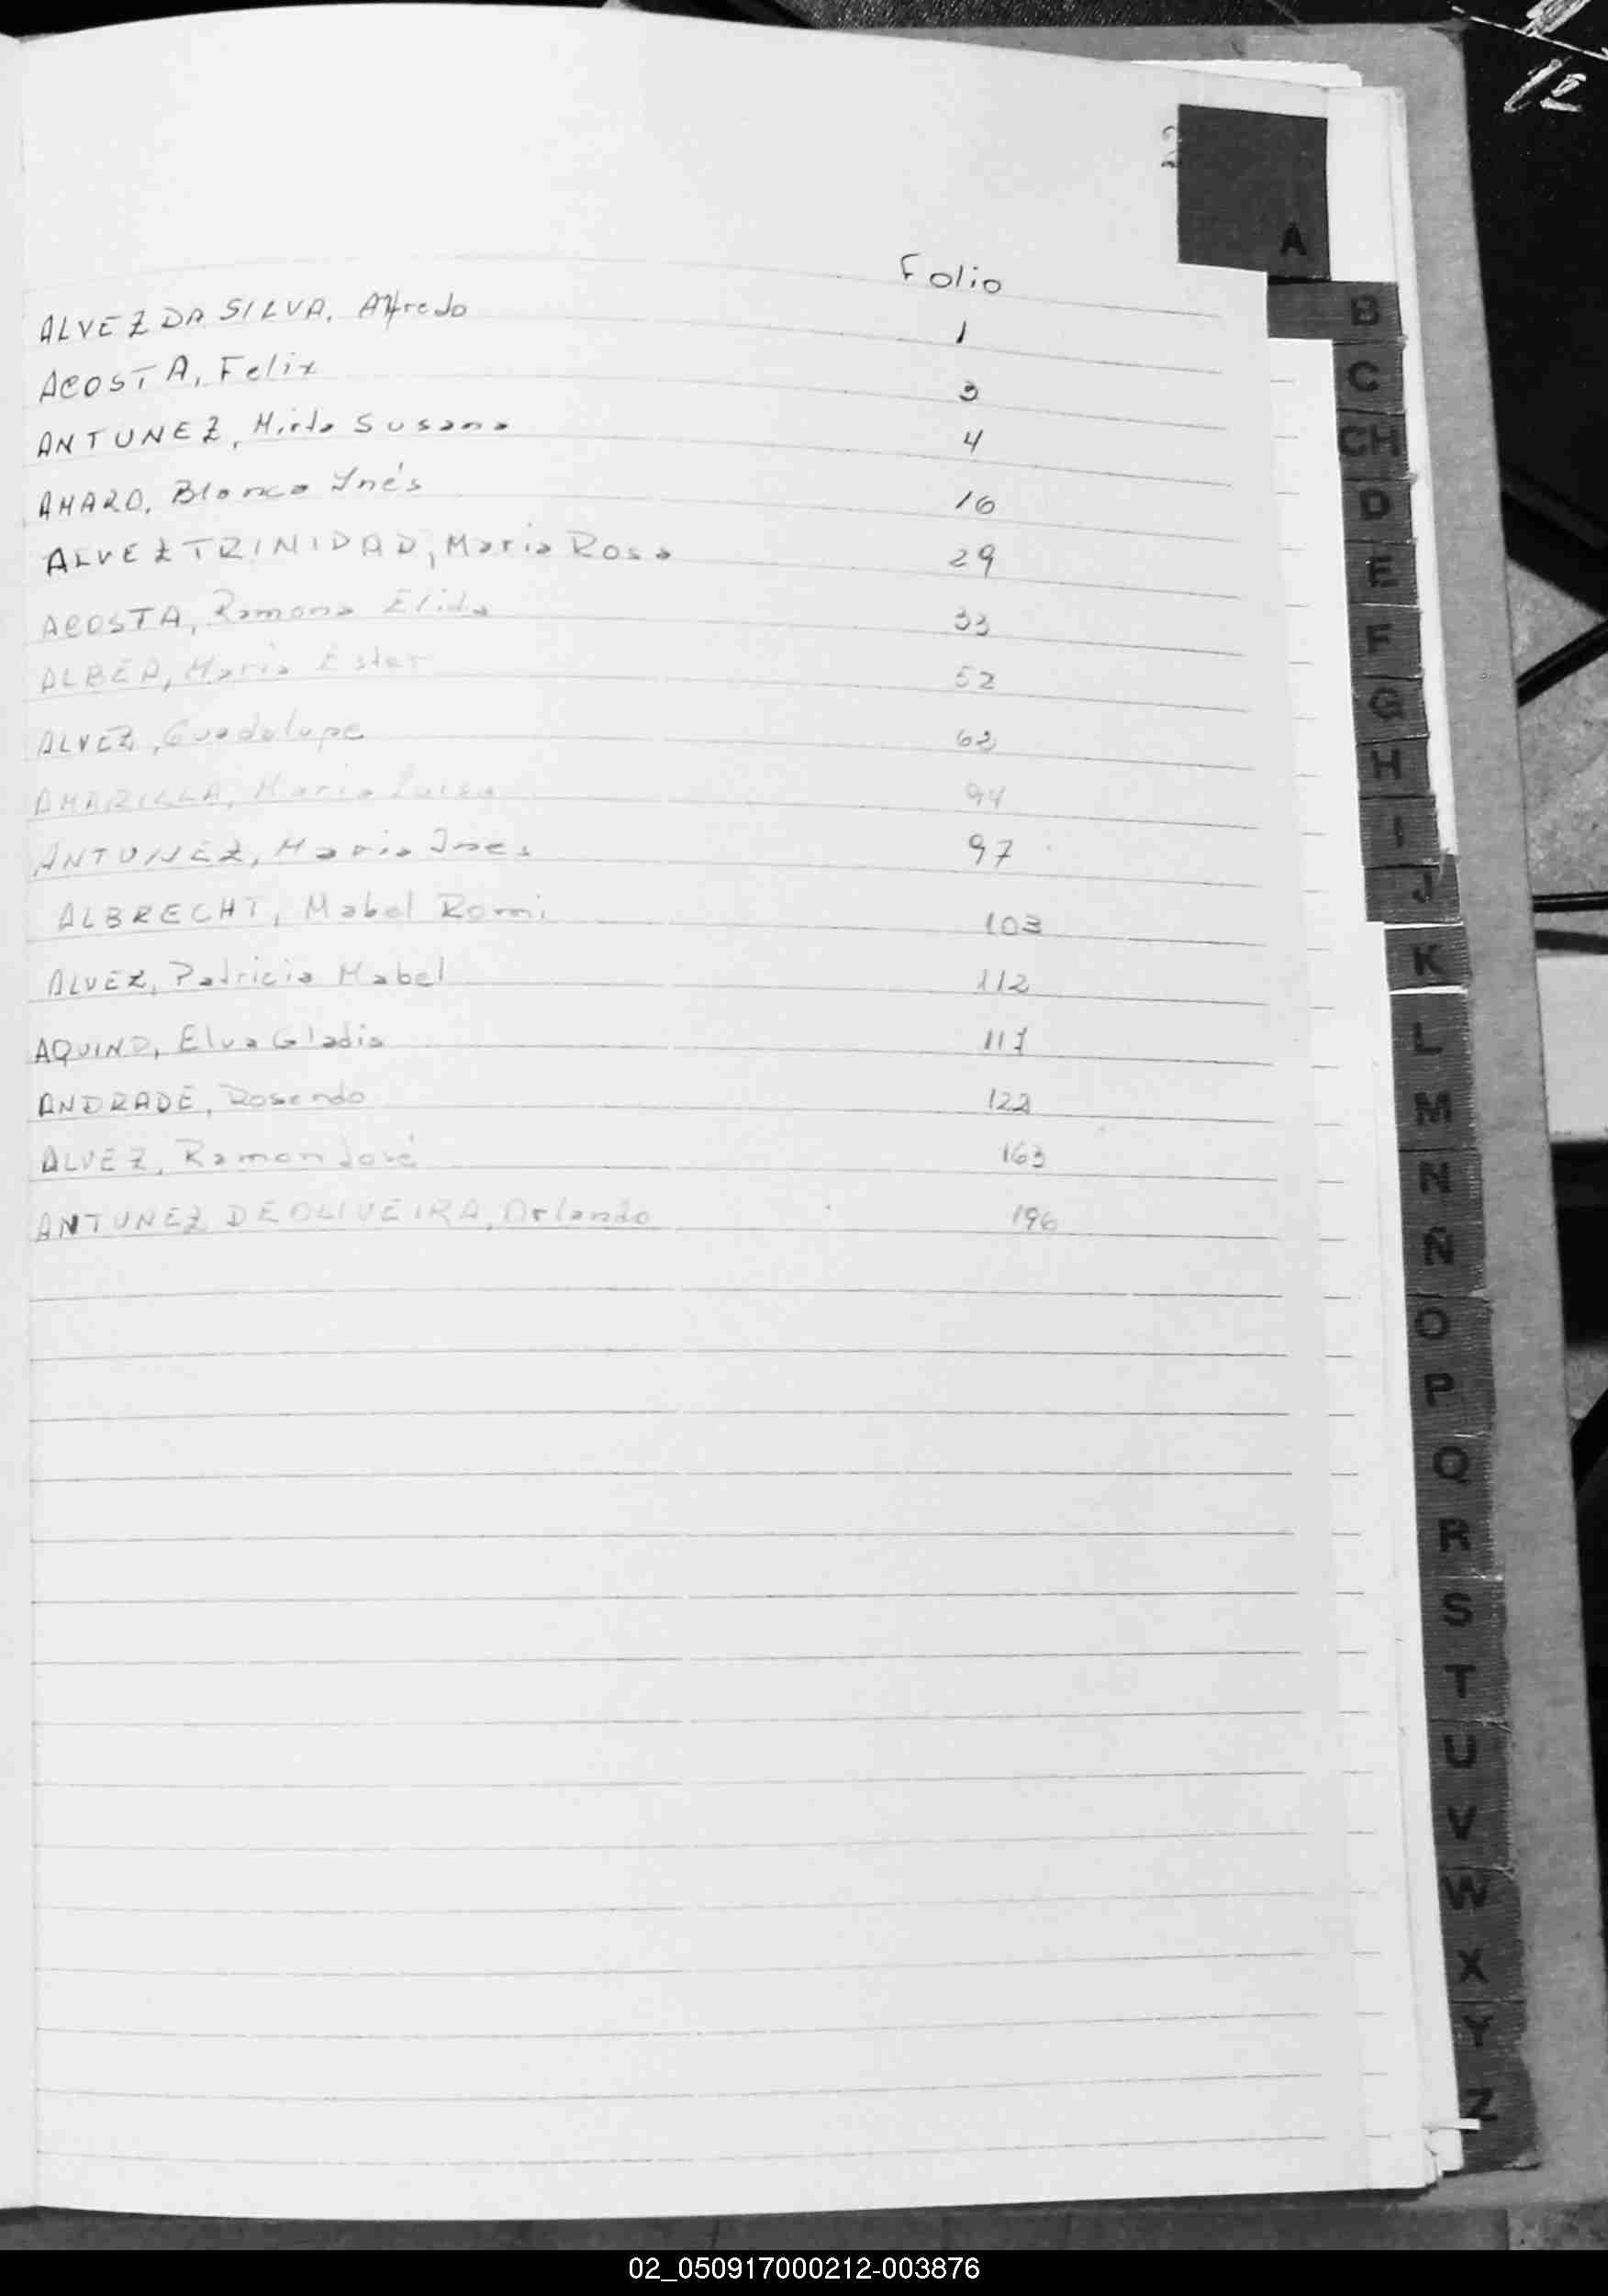 12
2
A
Folio
ALVEZ DA SILVA, Alfredo 1
ACOSTA, Felix 3
ANTUNEZ, Mirta Susana 4
AMARO, Blanca Inés 16
ALVEZ TRINIDAD, Maria Rosa 29
ACOSTA, Ramona Elida 33
ALBEA, Maria Ester 52
ALVEZ, Guadalupe 62
AMARILLA, Maria Luisa 94
ANTUNEZ, Maria Ines 97
ALBRECHT, Mabel Romi 103
ALVEZ, Patricia Mabel 112
AQUINO, Elva Gladis 117
ANDRADE, Rosendo 122
ALVEZ, Ramon José 163
ANTUNEZ DE OLIVEIRA, Orlando 196
B
C
CH
D
E
F
G
H
I
J
K
L
M
N
Ñ
O
P
Q
R
S
T
U
V
W
X
Y
Z
02_050917000212-003876